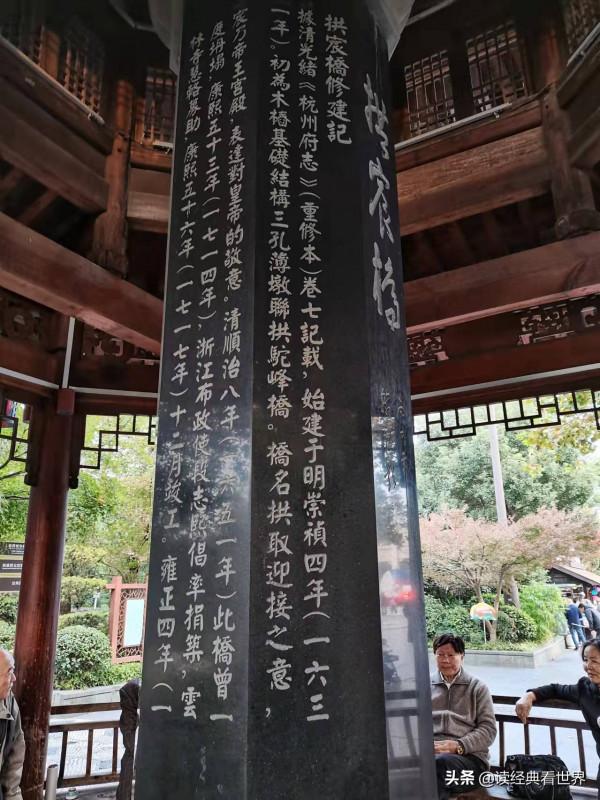 拱宸橋
拱宸橋修建記
據清光緒《杭州府志》（重修本）卷七記載，始建于明崇禎四年（一六三
一年）。初為木樁基礎結構三孔薄墩聯拱駝峰橋。橋名拱取迎接之意，
宸乃帝王宮殿，表達對皇帝的敬意。清順治八年（一六五一年）此橋曾一
度坍塌，康熙五十三年（一七一四年），浙江布政使段志熙倡率捐築，雲
林寺慧輅募助，康熙五十六年（一七一七年）十二月竣工。雍正四年（一
头条 @读经典看世界